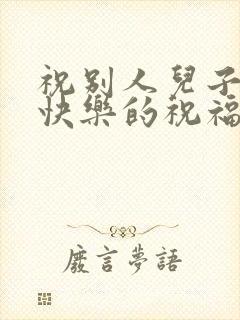 祝别人兒子
快樂的祝福
廢言夢語